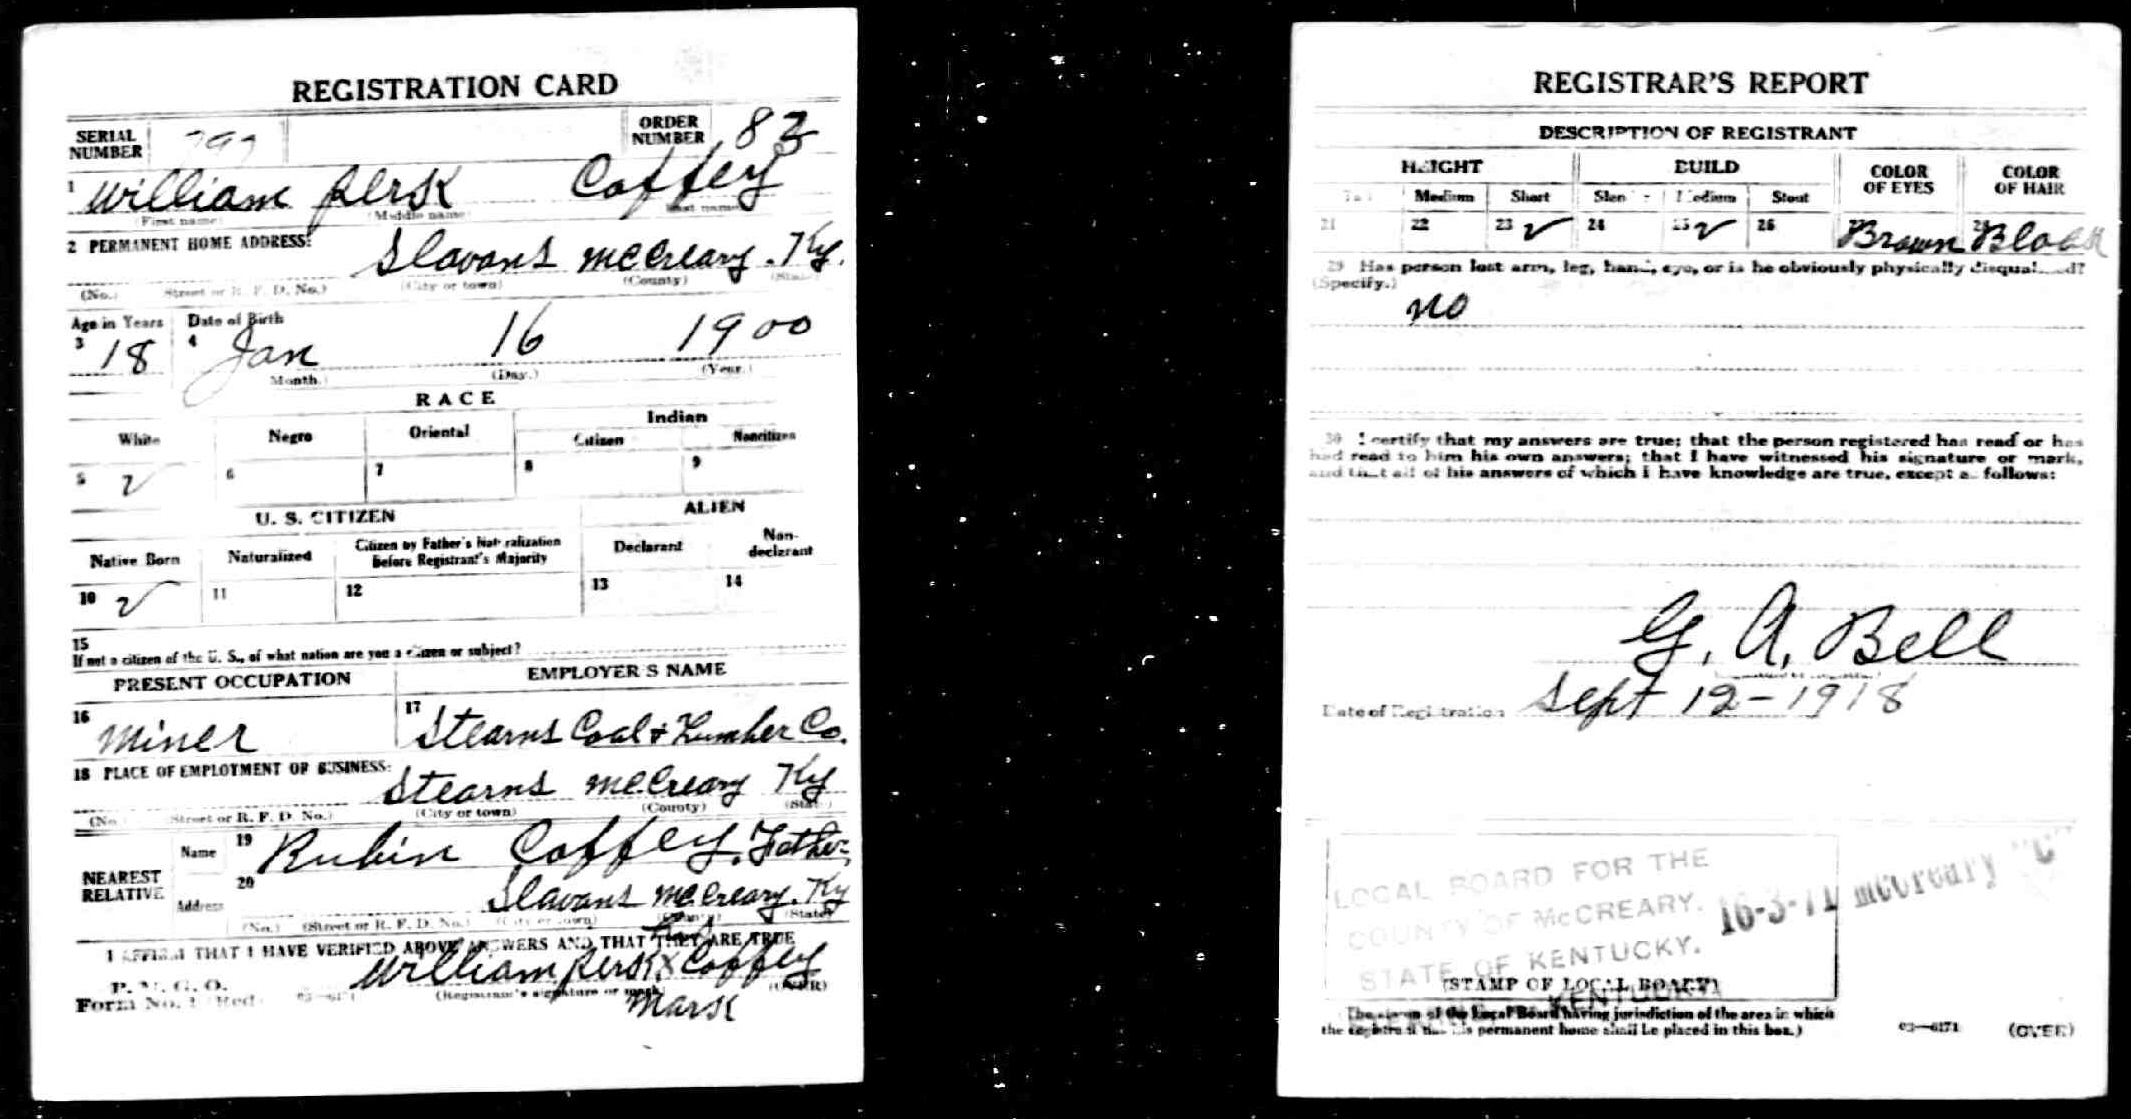 REGISTRATION CARD
SERIAL NUMBER 797 ORDER NUMBER 83
1 William Persk Coffey
(First name) (Middle name) Last name
2 PERMANENT HOME ADDRESS: Slavans McCreary. Ky.
(No.) Street or R. F. D. No.) (City or town) (County) (State)
Age in Years Date of Birth
3 18 4 Jan 16 1900
Month. (Day.) (Year.)
RACE
White Negro Oriental Indian
Citizen Noncitizen
5 ✓ 6 7 8 9
U. S. CITIZEN ALIEN
Native Born Naturalized Citizen by Father's Naturalization Before Registrant's Majority Declarant Non-declarant
10 ✓ 11 12 13 14
15
If not a citizen of the U. S., of what nation are you a citizen or subject?
PRESENT OCCUPATION EMPLOYER'S NAME
16 Miner 17 Stearns Coal + Lumber Co.
18 PLACE OF EMPLOYMENT OR BUSINESS:
Stearns McCreary Ky
(No.) Street or R. F. D. No.) (City or town) (County) (State)
NEAREST RELATIVE Name 19 Rubin Coffey, Father
Address 20 Slavans McCreary. Ky
(No.) (Street or R. F. D. No.) (City or town) (County) (State)
I AFFIRM THAT I HAVE VERIFIED ABOVE ANSWERS AND THAT THEY ARE TRUE
his
William Persk x Coffey
P. M. G. O.
Form No. 1 (Red) 03—6171 (Registrant's signature or mark) (OVER)
Mark
REGISTRAR'S REPORT
DESCRIPTION OF REGISTRANT
HEIGHT BUILD COLOR OF EYES COLOR OF HAIR
Tall Medium Short Slender Medium Stout
21 22 23 ✓ 24 25 ✓ 26 Brown 28 Black
29 Has person lost arm, leg, hand, eye, or is he obviously physically disqualified?
(Specify.) no
30 I certify that my answers are true; that the person registered has read or has
had read to him his own answers; that I have witnessed his signature or mark,
and that all of his answers of which I have knowledge are true, except as follows:
G. A. Bell
Date of Registration Sept 12-1918
LOCAL BOARD FOR THE
COUNTY OF McCREARY.
STATE OF KENTUCKY.
16-3-11 McCreary "C"
KENTUCKY
(STAMP OF LOCAL BOARD)
The stamp of the Local Board having jurisdiction of the area in which
the registrant has his permanent home shall be placed in this box.)
03—6171 (OVER)